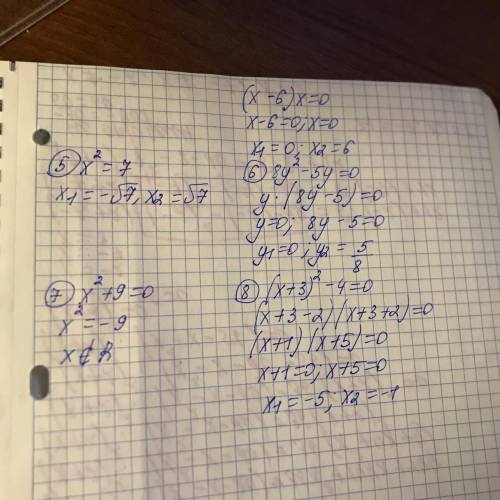 (x-6)x=0
x-6=0; x=0
x1=0; x2=6
5 x²=7
x1=-√7, x2=√7
6 8y²-5y=0
y·(8y-5)=0
y=0; 8y-5=0
y1=0; y2=5/8
7 x²+9=0
x²=-9
x∉R
8 (x+3)²-4=0
(x+3-2)(x+3+2)=0
(x+1)(x+5)=0
x+1=0; x+5=0
x1=-5; x2=-1